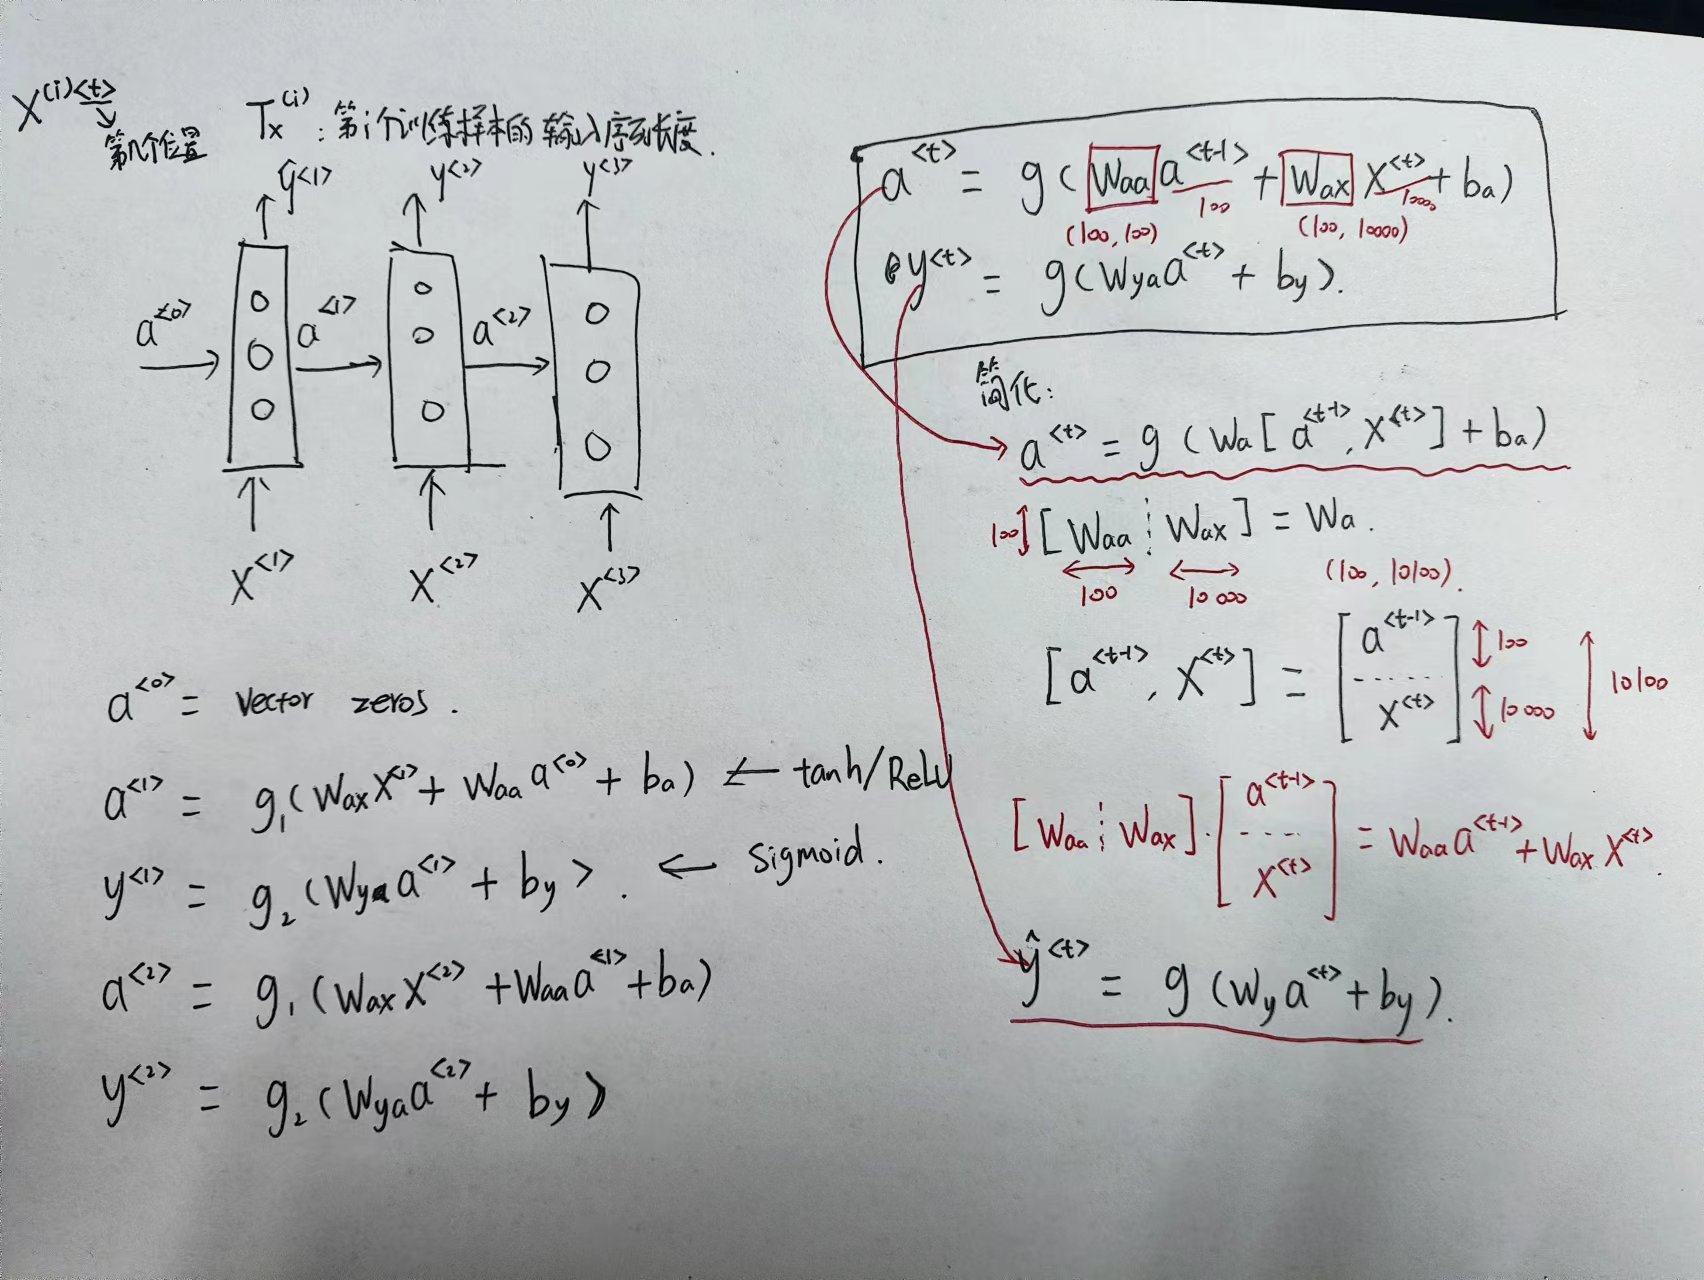 X^(i)<t>
第几个位置
Tx^(i) : 第i个训练样本的输入序列长度.
ŷ^<1> y^<2> y^<3>
a^<0> a^<1> a^<2>
X^<1> X^<2> X^<3>
a^<0> = vector zeros.
a^<1> = g₁(Wax X^<1> + Waa a^<0> + ba) ← tanh/ReLU
y^<1> = g₂(Wya a^<1> + by). ← sigmoid.
a^<2> = g₁(Wax X^<2> + Waa a^<1> + ba)
y^<2> = g₂(Wya a^<2> + by)
a^<t> = g(Waa a^<t-1> + Wax X^<t> + ba)
100 10000
(100, 100) (100, 10000)
y^<t> = g(Wya a^<t> + by).
简化:
a^<t> = g(Wa[a^<t-1>, X^<t>] + ba)
100 [Waa ⋮ Wax] = Wa.
100 10000 (100, 10100).
[a^<t-1>, X^<t>] = [a^<t-1> 100
X^<t>] 10000
10100
[Waa ⋮ Wax]·[a^<t-1>
X^<t>] = Waa a^<t-1> + Wax X^<t>.
ŷ^<t> = g(Wy a^<t> + by).